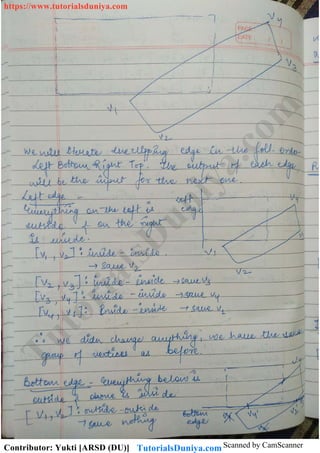 https://www.tutorialsduniya.com
PAGE
DATE
V4
V3
V1
V2
we will iterate the clipping edge in the foll. order
Left Bottom Right Top. The output of each edge
will be the input for the next one.
Left edge -
Everything on the left is
outside & on the right
is inside.
left
edge
V4
V1
V2
[V1, V2] : inside - inside
→ save V2
[V2, V3] : inside - inside → save V3
[V3, V4] : inside - inside → save V4
[V4, V1] : Inside - inside → save V1
∴ we didn change anything, we have the same
group of vertices as before.
Bottom edge - Everything below is
outside & above is inside
[V1, V2] : outside - outside
→ save nothing
bottom
edge
TutorialsDuniya.com
Contributor: Yukti [ARSD (DU)]
TutorialsDuniya.com
Scanned by CamScanner